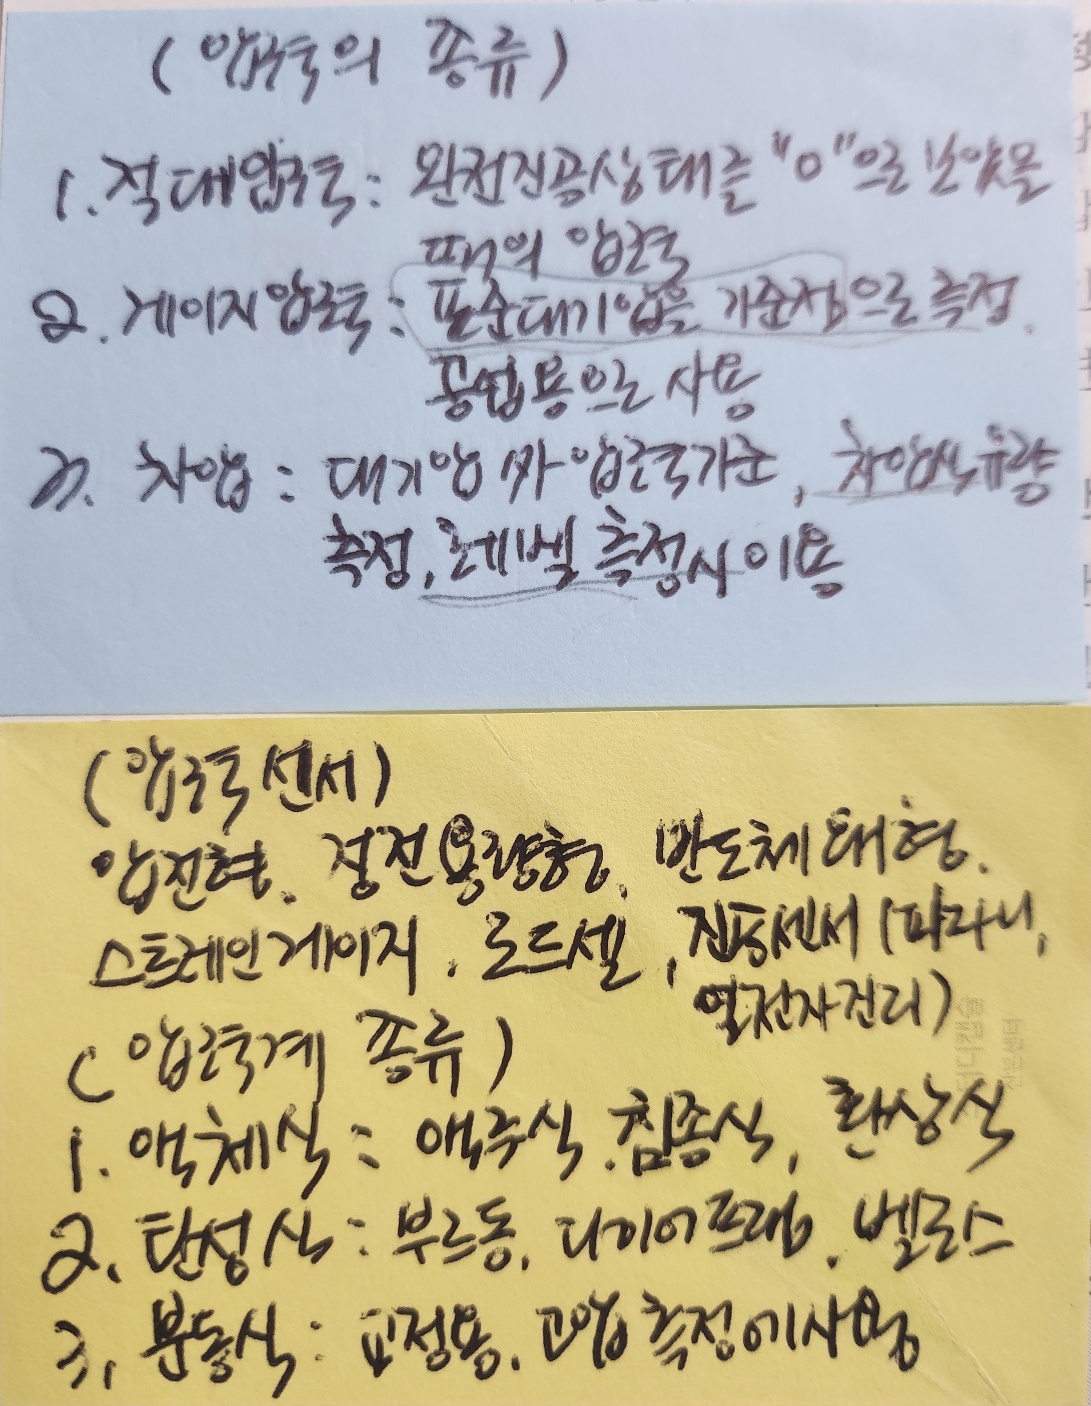 (압력의 종류)
1. 적대압력: 완전진공상태를 "0"으로 보았을
때의 압력
2. 게이지압력: 표준대기압을 기준점으로 측정.
공업용으로 사용
3. 차압: 대기압 外 압력기준, 차압식유량
측정, 레벨측정시 이용
(압력센서)
압전형. 정전용량형. 반도체 형.
스트레인게이지. 로드셀, 센서(피라니,
열전자전리)
(압력계 종류)
1. 액체식: 액주식. 침종식, 환상식
2. 탄성식: 부르동. 다이어프램. 벨로스
3. 분동식: 교정용. 고압측정에사용